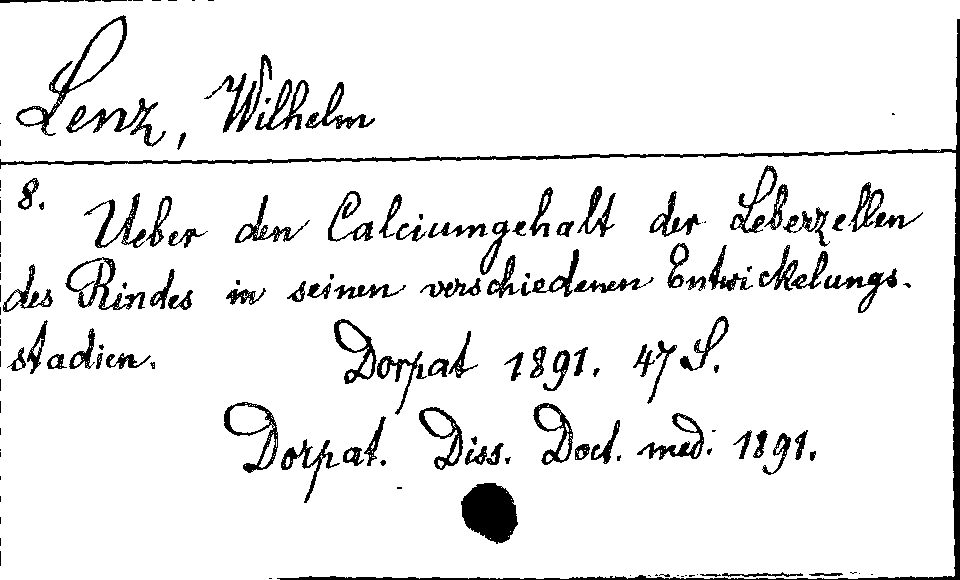 Lenz, Wilhelm
8.
Ueber den Calciumgehalt der Leberzellen
des Rindes in seinen verschiedenen Entwickelungs-
stadien. Dorpat 1891. 47 S.
Dorpat. Diss. Doct. med. 1891.